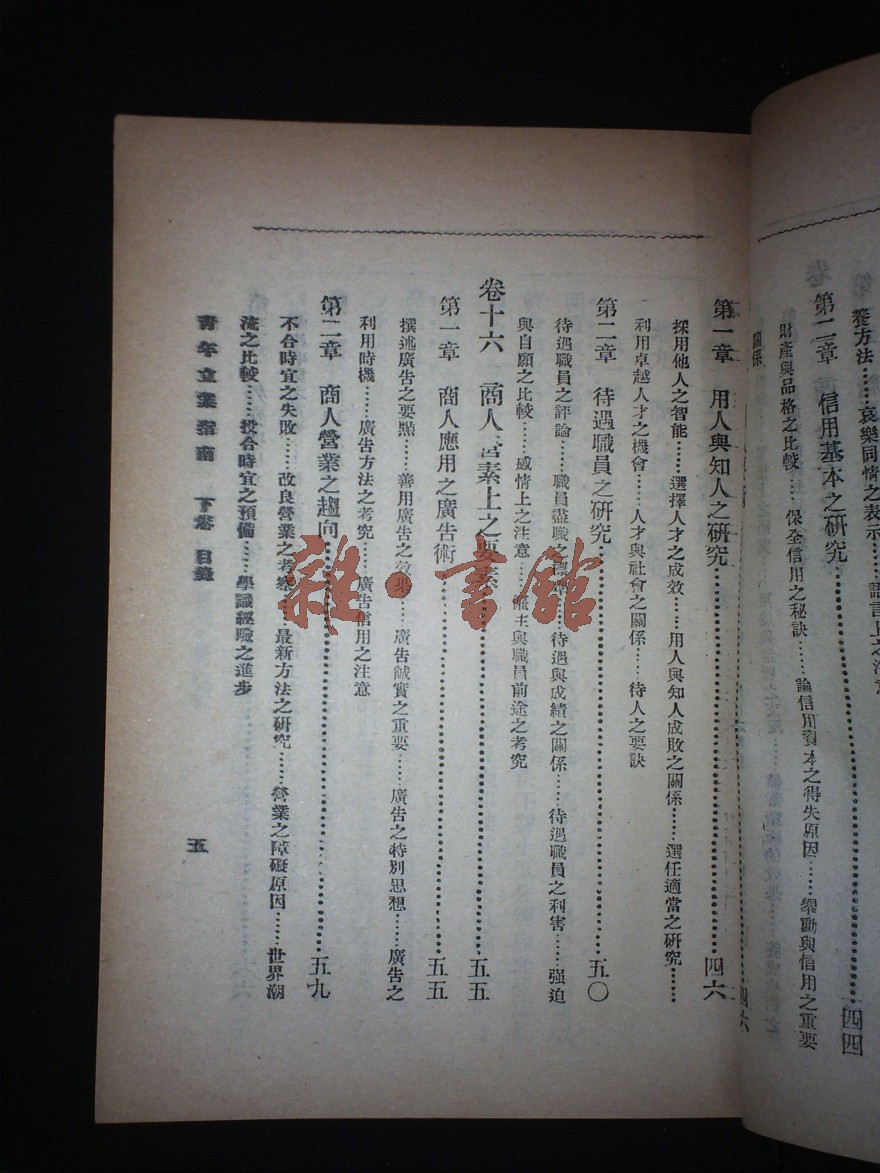 養方法……哀樂同情之表示……語言上之注意
第二章　信用基本之研究……四四
財產與品格之比較……保全信用之秘訣……論信用資本之得失原因……舉動與信用之重要
關係
四六
第一章　用人與知人之研究……四六
採用他人之智能……選擇人才之成效……用人與知人成敗之關係……選任適當之研究……
利用卓越人才之機會……人才與社會之關係……待人之要訣
第二章　待遇職員之研究……五〇
待遇職員之評論……職員盡職之標準……待遇與成績之關係……待遇職員之利害……强迫
與自願之比較……感情上之注意……僱主與職員前途之考究
卷十六　商人營業上之要素……五五
第一章　商人應用之廣告術……五五
撰述廣告之要點……善用廣告之效果……廣告誠實之重要……廣告之特別思想……廣告之
利用時機……廣告方法之考究……廣告信用之注意
第二章　商人營業之趨向……五九
不合時宜之失敗……改良營業之考察……最新方法之研究……營業之障礙原因……世界潮
流之比較……投合時宜之預備……學識經驗之進步
青年立業指南　下卷　目錄
五
雜·書館